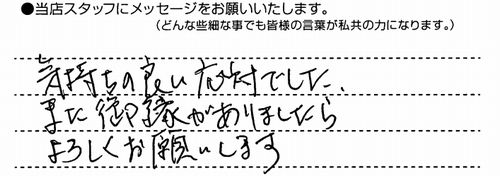 ●当店スタッフにメッセージをお願いいたします。
（どんな些細な事でも皆様の言葉が私共の力になります。）
気持ちの良い応対でした、
また御縁がありましたら
よろしくお願いします